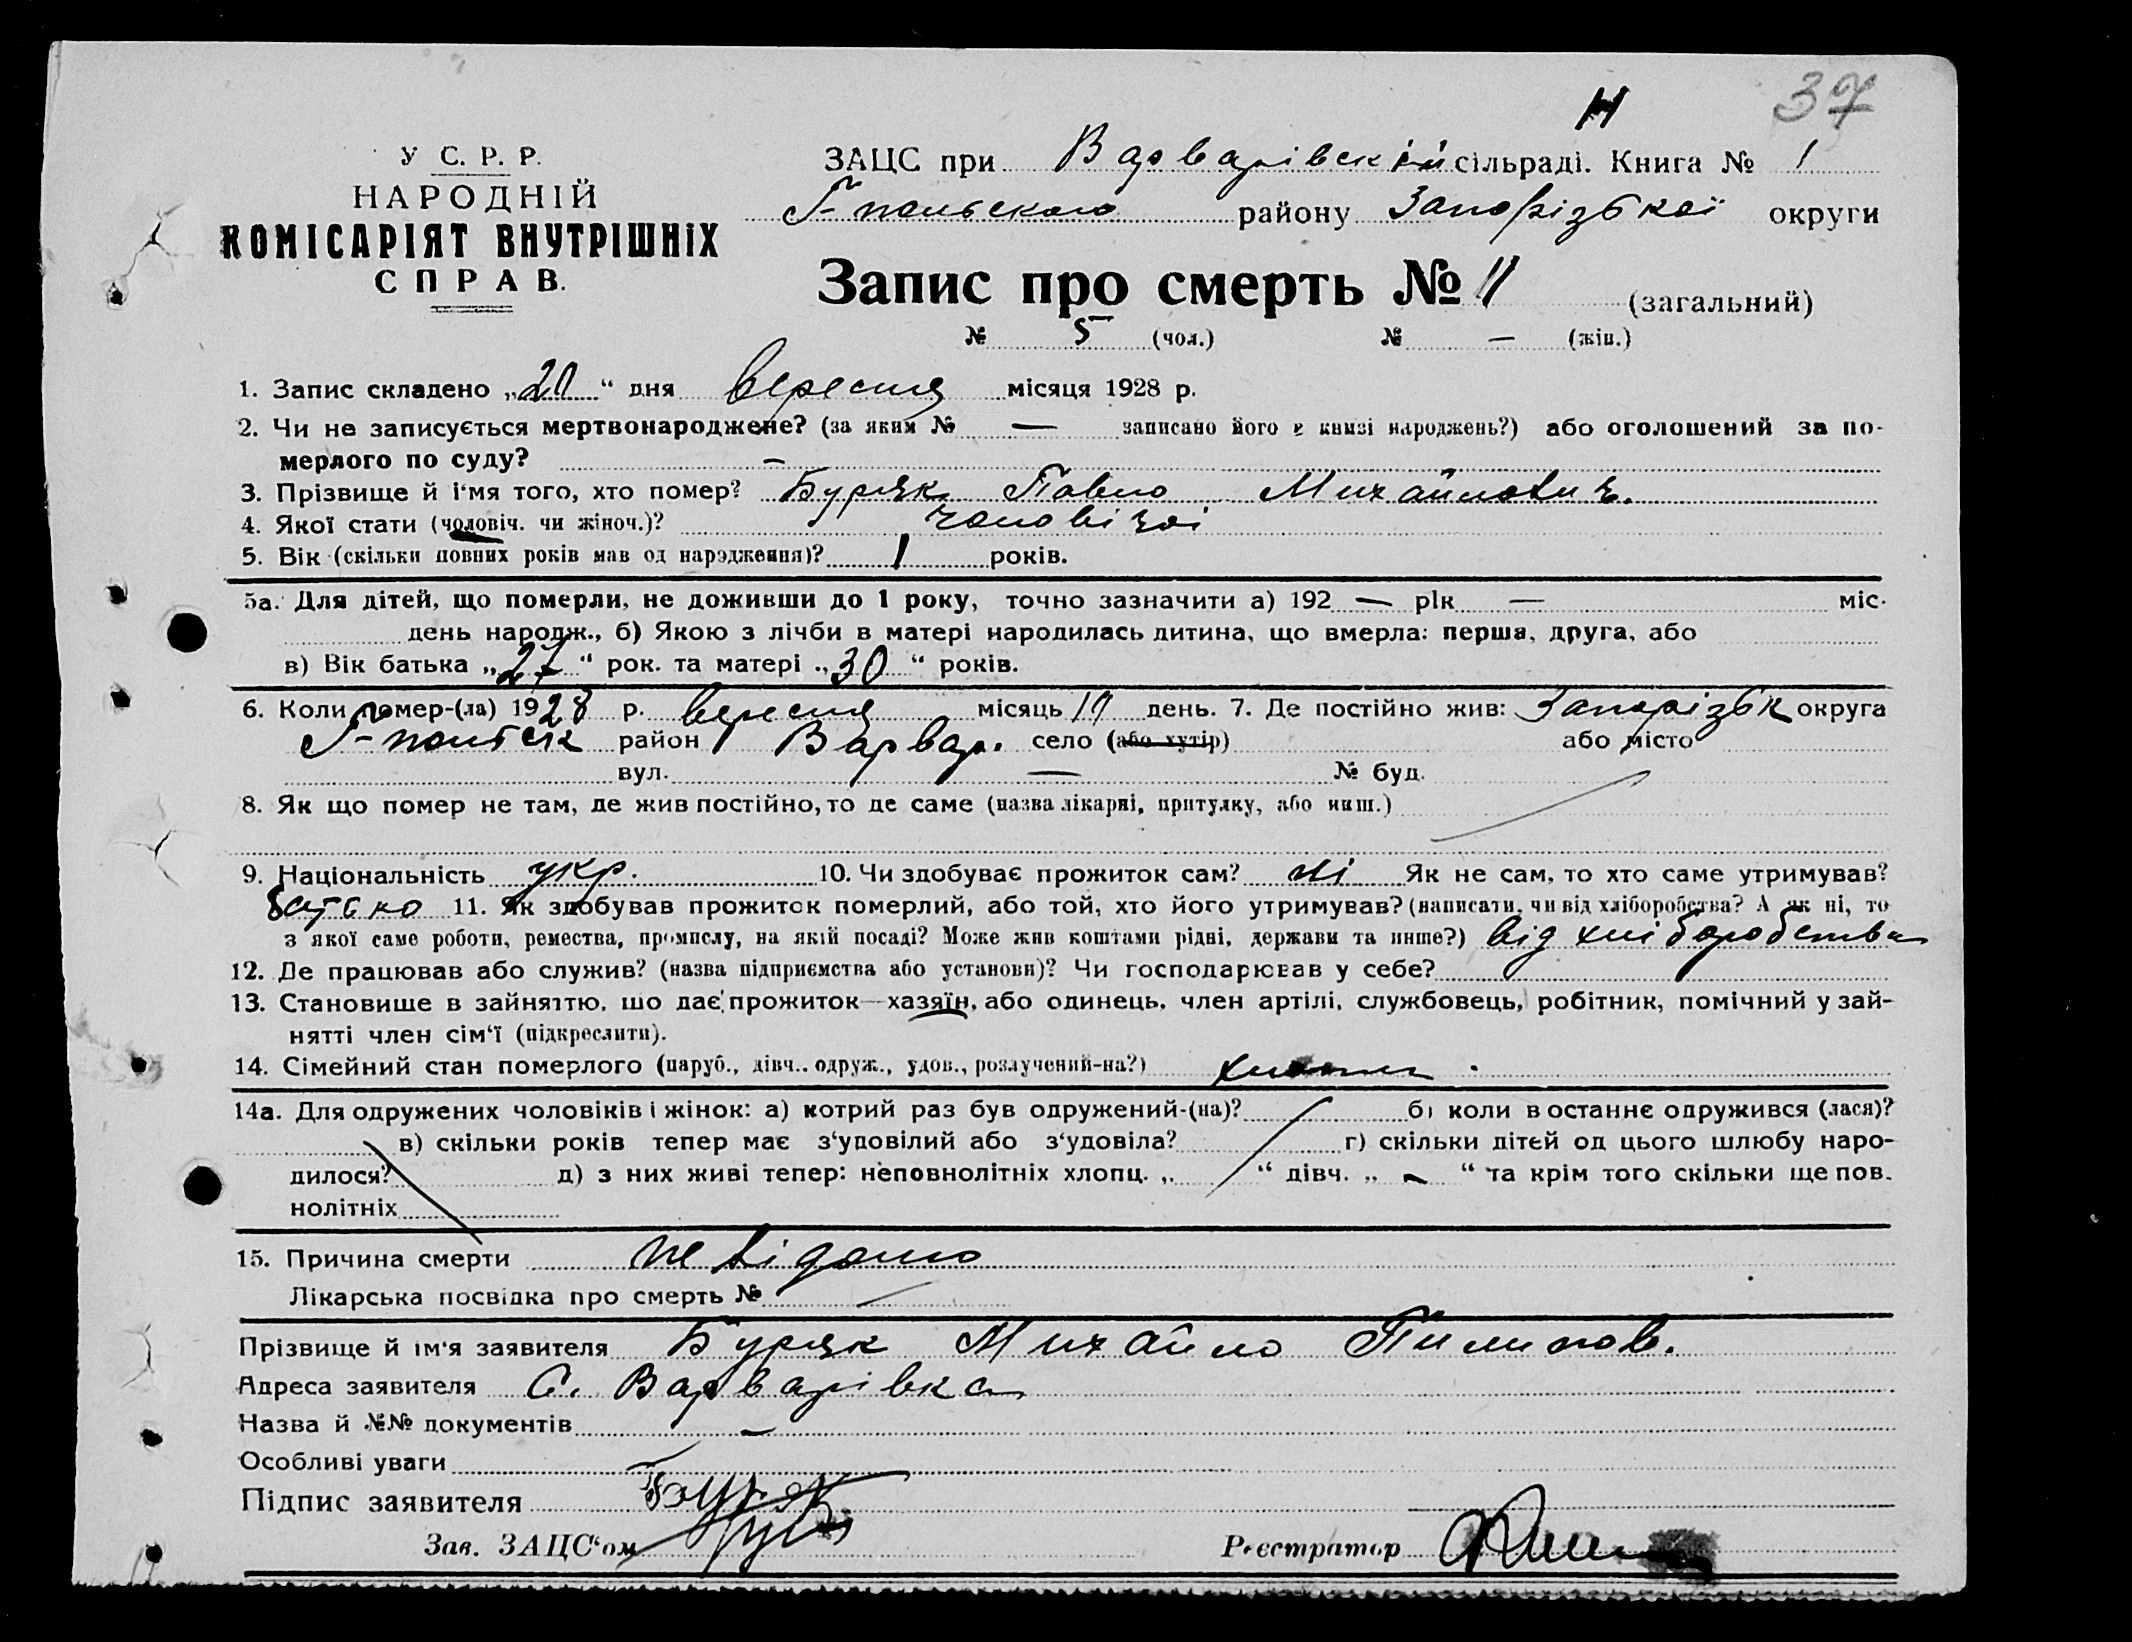 Н 37
У С. Р. Р.
НАРОДНІЙ
КОМІСАРІЯТ ВНУТРІШНІХ
СПРАВ.
ЗАЦС при Варварівській сільраді. Книга № 1
Г-польського району Запорізької округи
Запис про смерть № 11 (загальний)
№ 5 (чол.) № — (жін.)
1. Запис складено „20“ дня вересня місяця 1928 р.
2. Чи не записується мертвонароджене? (за яким № — записано його в книзі народжень?) або оголошений за по-
мерлого по суду? —
3. Прізвище й і'мя того, хто помер? Буряк Павло Михайлович.
4. Якої стати (чоловіч. чи жіноч.)? чоловічої
5. Вік (скільки повних років мав од народження)? 1 років.
5а. Для дітей, що померли, не доживши до 1 року, точно зазначити а) 192 — рік — міс.
день народж., б) Якою з лічби в матері народилась дитина, що вмерла: перша, друга, або
в) Вік батька „27“ рок. та матері „30“ років.
6. Коли помер-(ла) 1928 р. вересня місяць день. 7. Де постійно жив: Запорізьк округа
Г-польськ район Варвар. село (або хутір) або місто
вул. — № буд.
8. Як що помер не там, де жив постійно, то де саме (назва лікарні, притулку, або инш.)
9. Національність укр. 10. Чи здобуває прожиток сам? ні Як не сам, то хто саме утримував?
батько 11. Як здобував прожиток померлий, або той, хто його утримував? (написати, чи від хліборобства? А як ні, то
з якої саме роботи, ремества, промислу, на якій посаді? Може жив коштами рідні, держави та инше?) від хліборобства
12. Де працював або служив? (назва підприємства або установи)? Чи господарював у себе?
13. Становище в зайняттю, що дає прожиток—хазяїн, або одинець, член артілі, службовець, робітник, помічний у зай-
нятті член сім'ї (підкреслити).
14. Сімейний стан померлого (паруб., дівч., одруж., удов., розлучений-на?)
14а. Для одружених чоловіків і жінок: а) котрий раз був одружений-(на)? б) коли в останнє одружився (лася)?
в) скільки років тепер має з'удовілий або з'удовіла? г) скільки дітей од цього шлюбу наро-
дилося? д) з них живі тепер: неповнолітніх хлопц. „ “ дівч. „ — “ та крім того скільки ще пов.
нолітніх
15. Причина смерти невідомо
Лікарська посвідка про смерть №
Прізвище й ім'я заявителя Буряк Михайло Пилипов.
Адреса заявителя С. Варварівка
Назва й №№ документів —
Особливі уваги
Підпис заявителя Буряк
Зав. ЗАЦС'ом
Реєстратор